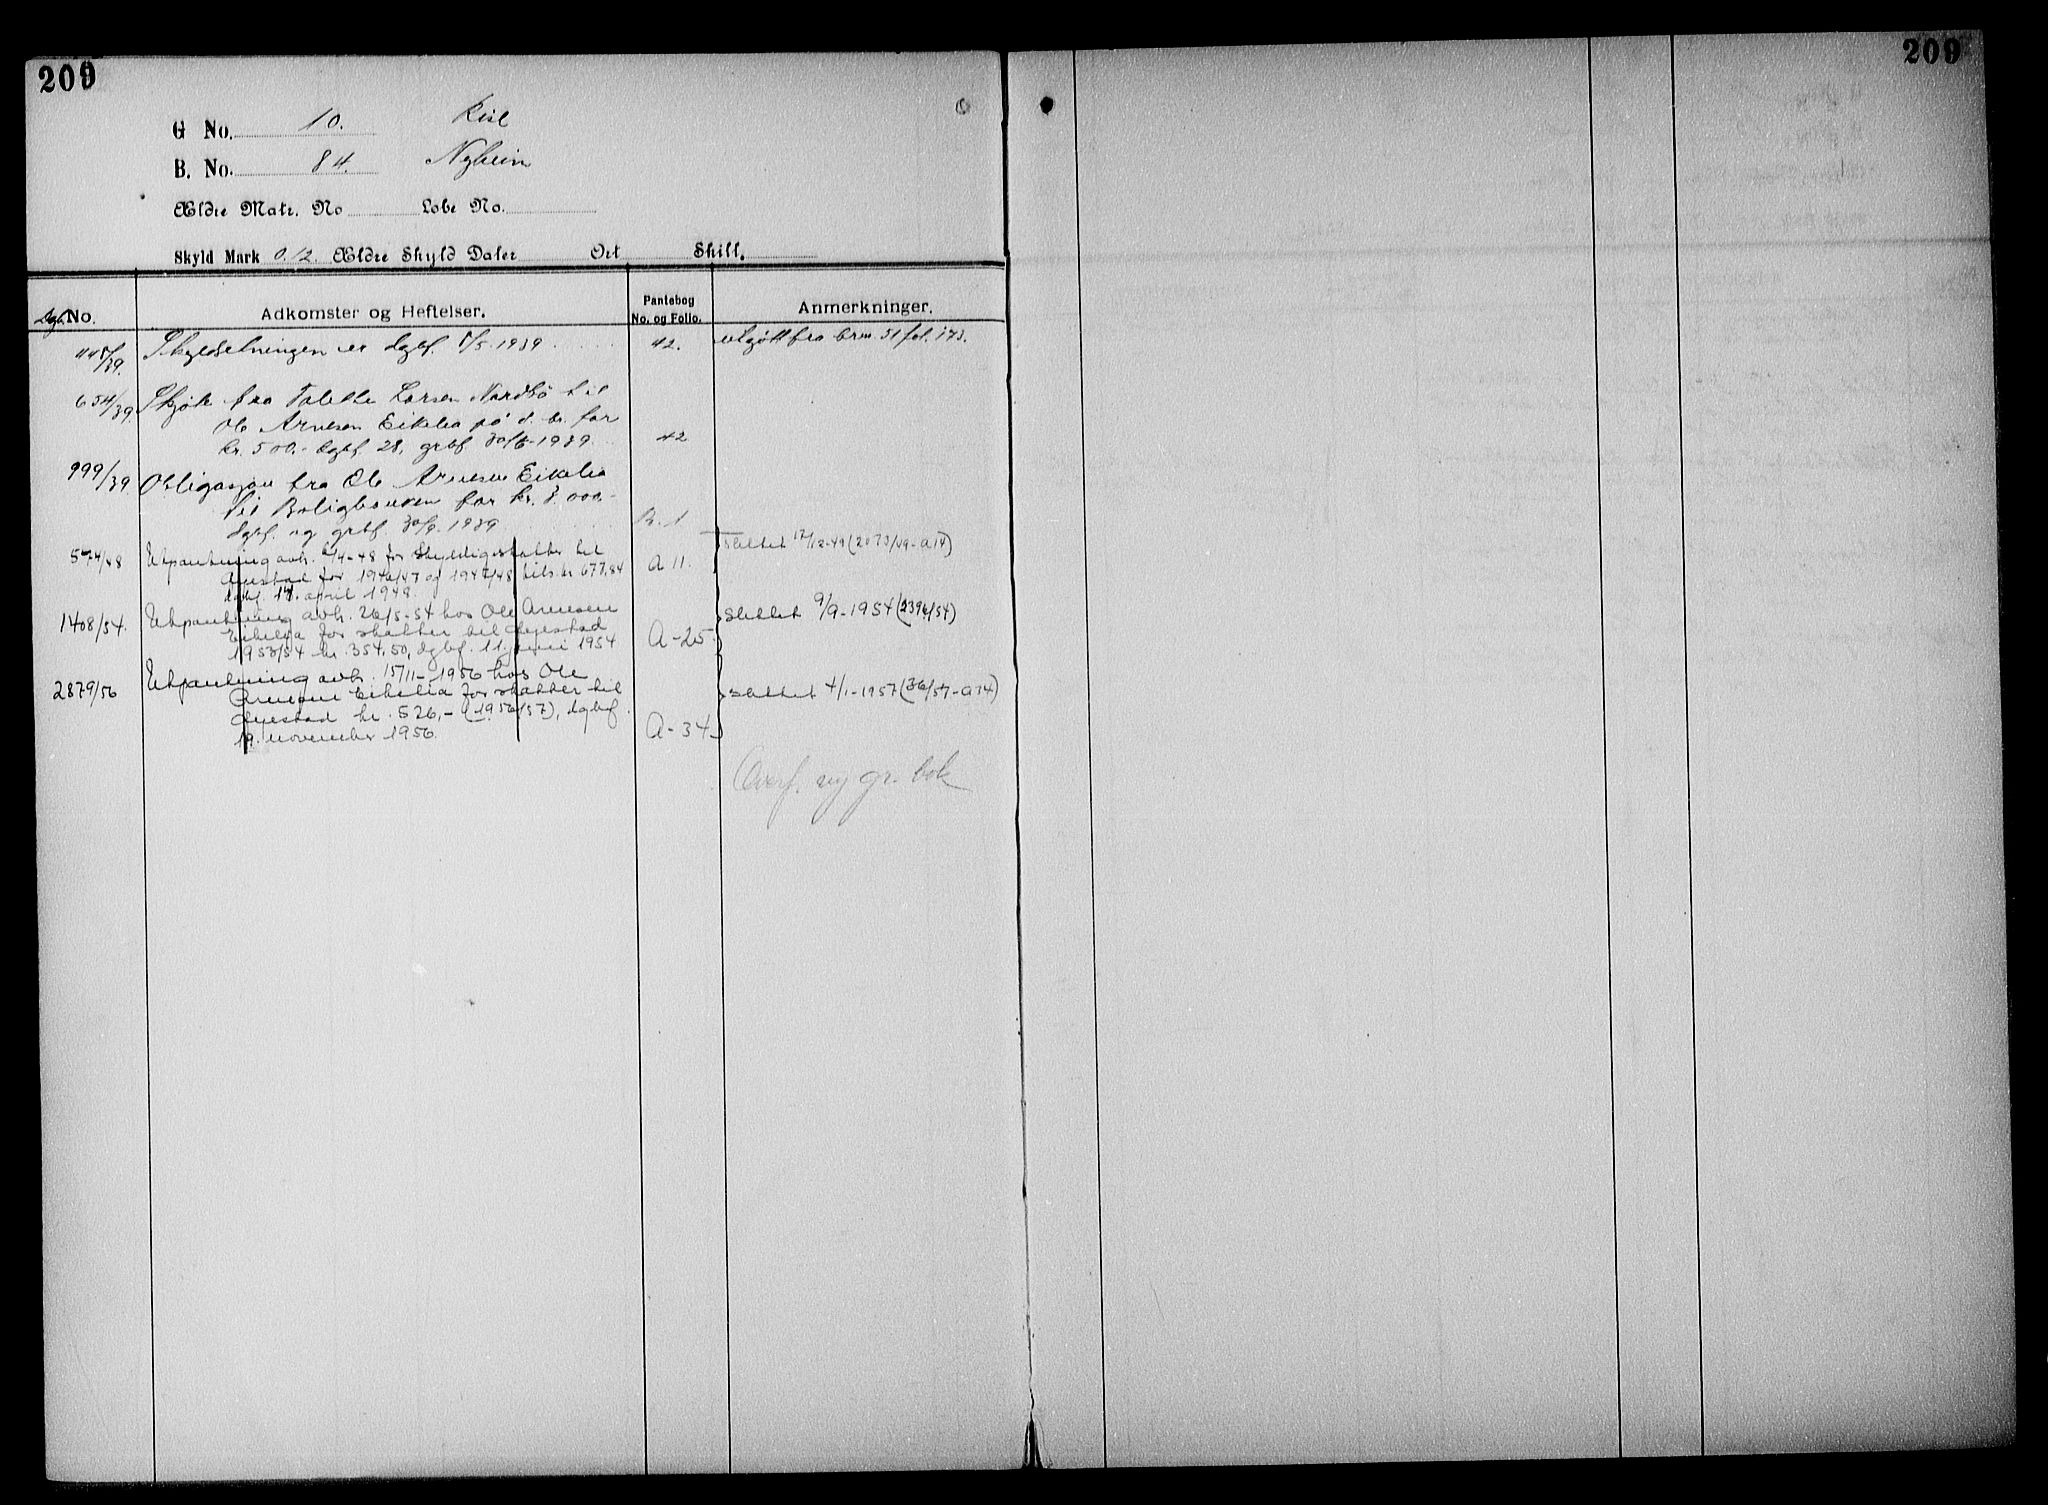 209
209
G No. 10. Rise
B. No. 84. Nyheim
Ældre Matr. No Løbe No.
Skyld Mark 0.12 Ældre Skyld Daler Ort Skill.
Dgb. No. Adkomster og Heftelser. Pantebog No. og Folio. Anmerkninger.
445/39. Skyldsetningen er dgbf. 8/5-1939 42. utgått fra brn. 51 fol. 173.
654/39. Skjøte fra Tolette Larsen Nordbø til
Ole Arnesen Eikelia på d. br. for
kr. 500.- dgbf. 28, grbf 30/6-1939 42
999/39 Obligasjon fra Ole Arnesen Eikelia
til Boligbanken for kr. 3.000.-
dgbf. og grbf. 30/9. 1939 B. 1
574/48 Utpantning avh. /4-48 for skyldige skatter til
Øyestad for 1946/47 og 1947/48 tils. kr 677,84 A 11. slettet 17/12-49 (2073/49-A14)
dgbf. 14. april 1948.
1408/54. Utpantning avh. 26/5-54 hos Ole Arnesen
Eikelia for skatter til Øyestad
1953/54 kr. 354,50, dgbf. 11. juni 1954 A-25 slettet 9/9-1954 (2396/54)
2879/56 Utpantning avh. 15/11-1956 hos Ole
Arnesen Eikelia for skatter til
Øyestad kr. 526,- (1956/57), dgbf.
19. november 1956. A-34 slettet 4/1-1957 (36/57-A34)
Overf. ny gr. bok